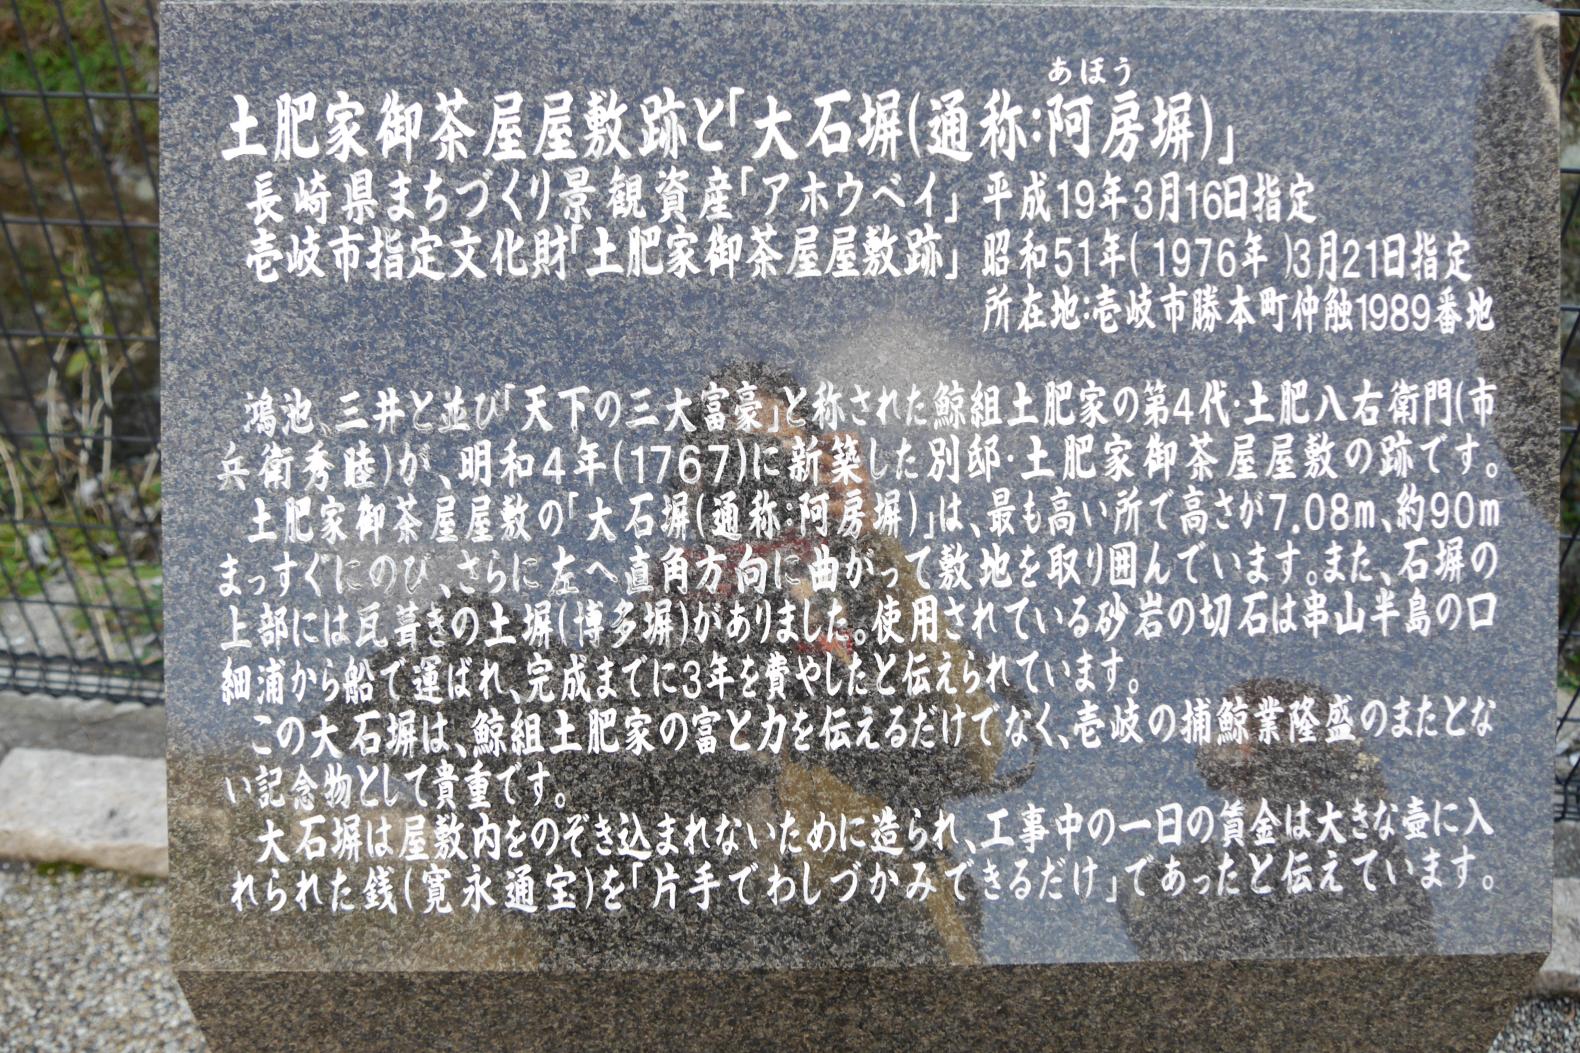 あほう
土肥家御茶屋屋敷跡と「大石塀(通称:阿房塀)」
長崎県まちづくり景観資産「アホウベイ」 平成19年3月16日指定
壱岐市指定文化財「土肥家御茶屋屋敷跡」 昭和51年(1976年)3月21日指定
所在地:壱岐市勝本町仲触1989番地
鴻池、三井と並び「天下の三大富豪」と称された鯨組土肥家の第4代・土肥八右衛門(市
兵衛秀睦)が、明和4年(1767)に新築した別邸・土肥家御茶屋屋敷の跡です。
土肥家御茶屋屋敷の「大石塀(通称:阿房塀)」は、最も高い所で高さが7.08m、約90m
まっすぐにのび、さらに左へ直角方向に曲がって敷地を取り囲んでいます。また、石塀の
上部には瓦葺きの土塀(博多塀)がありました。使用されている砂岩の切石は串山半島の口
細浦から船で運ばれ、完成までに3年を費やしたと伝えられています。
この大石塀は、鯨組土肥家の富と力を伝えるだけでなく、壱岐の捕鯨業隆盛のまたとな
い記念物として貴重です。
大石塀は屋敷内をのぞき込まれないために造られ、工事中の一日の賃金は大きな壷に入
れられた銭(寛永通宝)を「片手でわしづかみできるだけ」であったと伝えています。